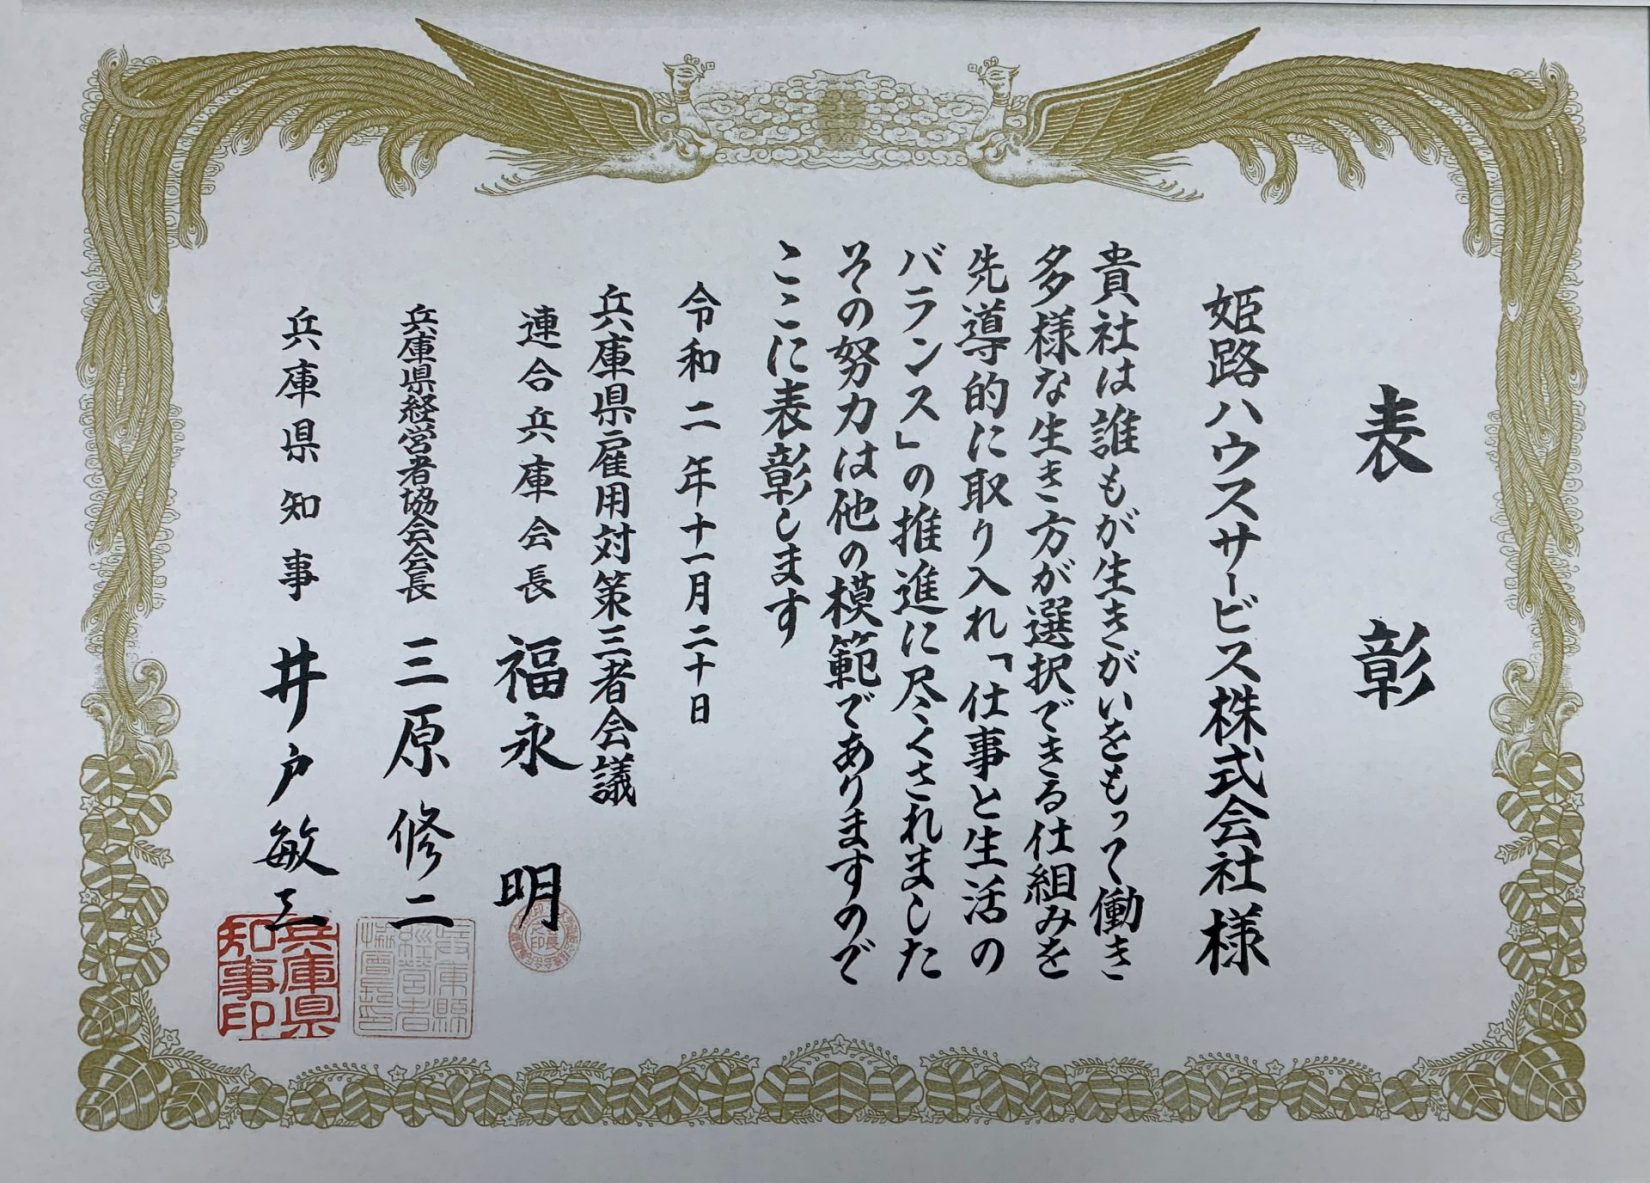 表彰
姫路ハウスサービス株式会社様
貴社は誰もが生きがいをもって働き
多様な生き方が選択できる仕組みを
先導的に取り入れ「仕事と生活の
バランス」の推進に尽くされました
その努力は他の模範でありますので
ここに表彰します
令和二年十一月二十日
兵庫県雇用対策三者会議
連合兵庫会長 福永明
兵庫県経営者協会会長 三原修二
兵庫県知事 井戸敏三
兵庫県
知事印